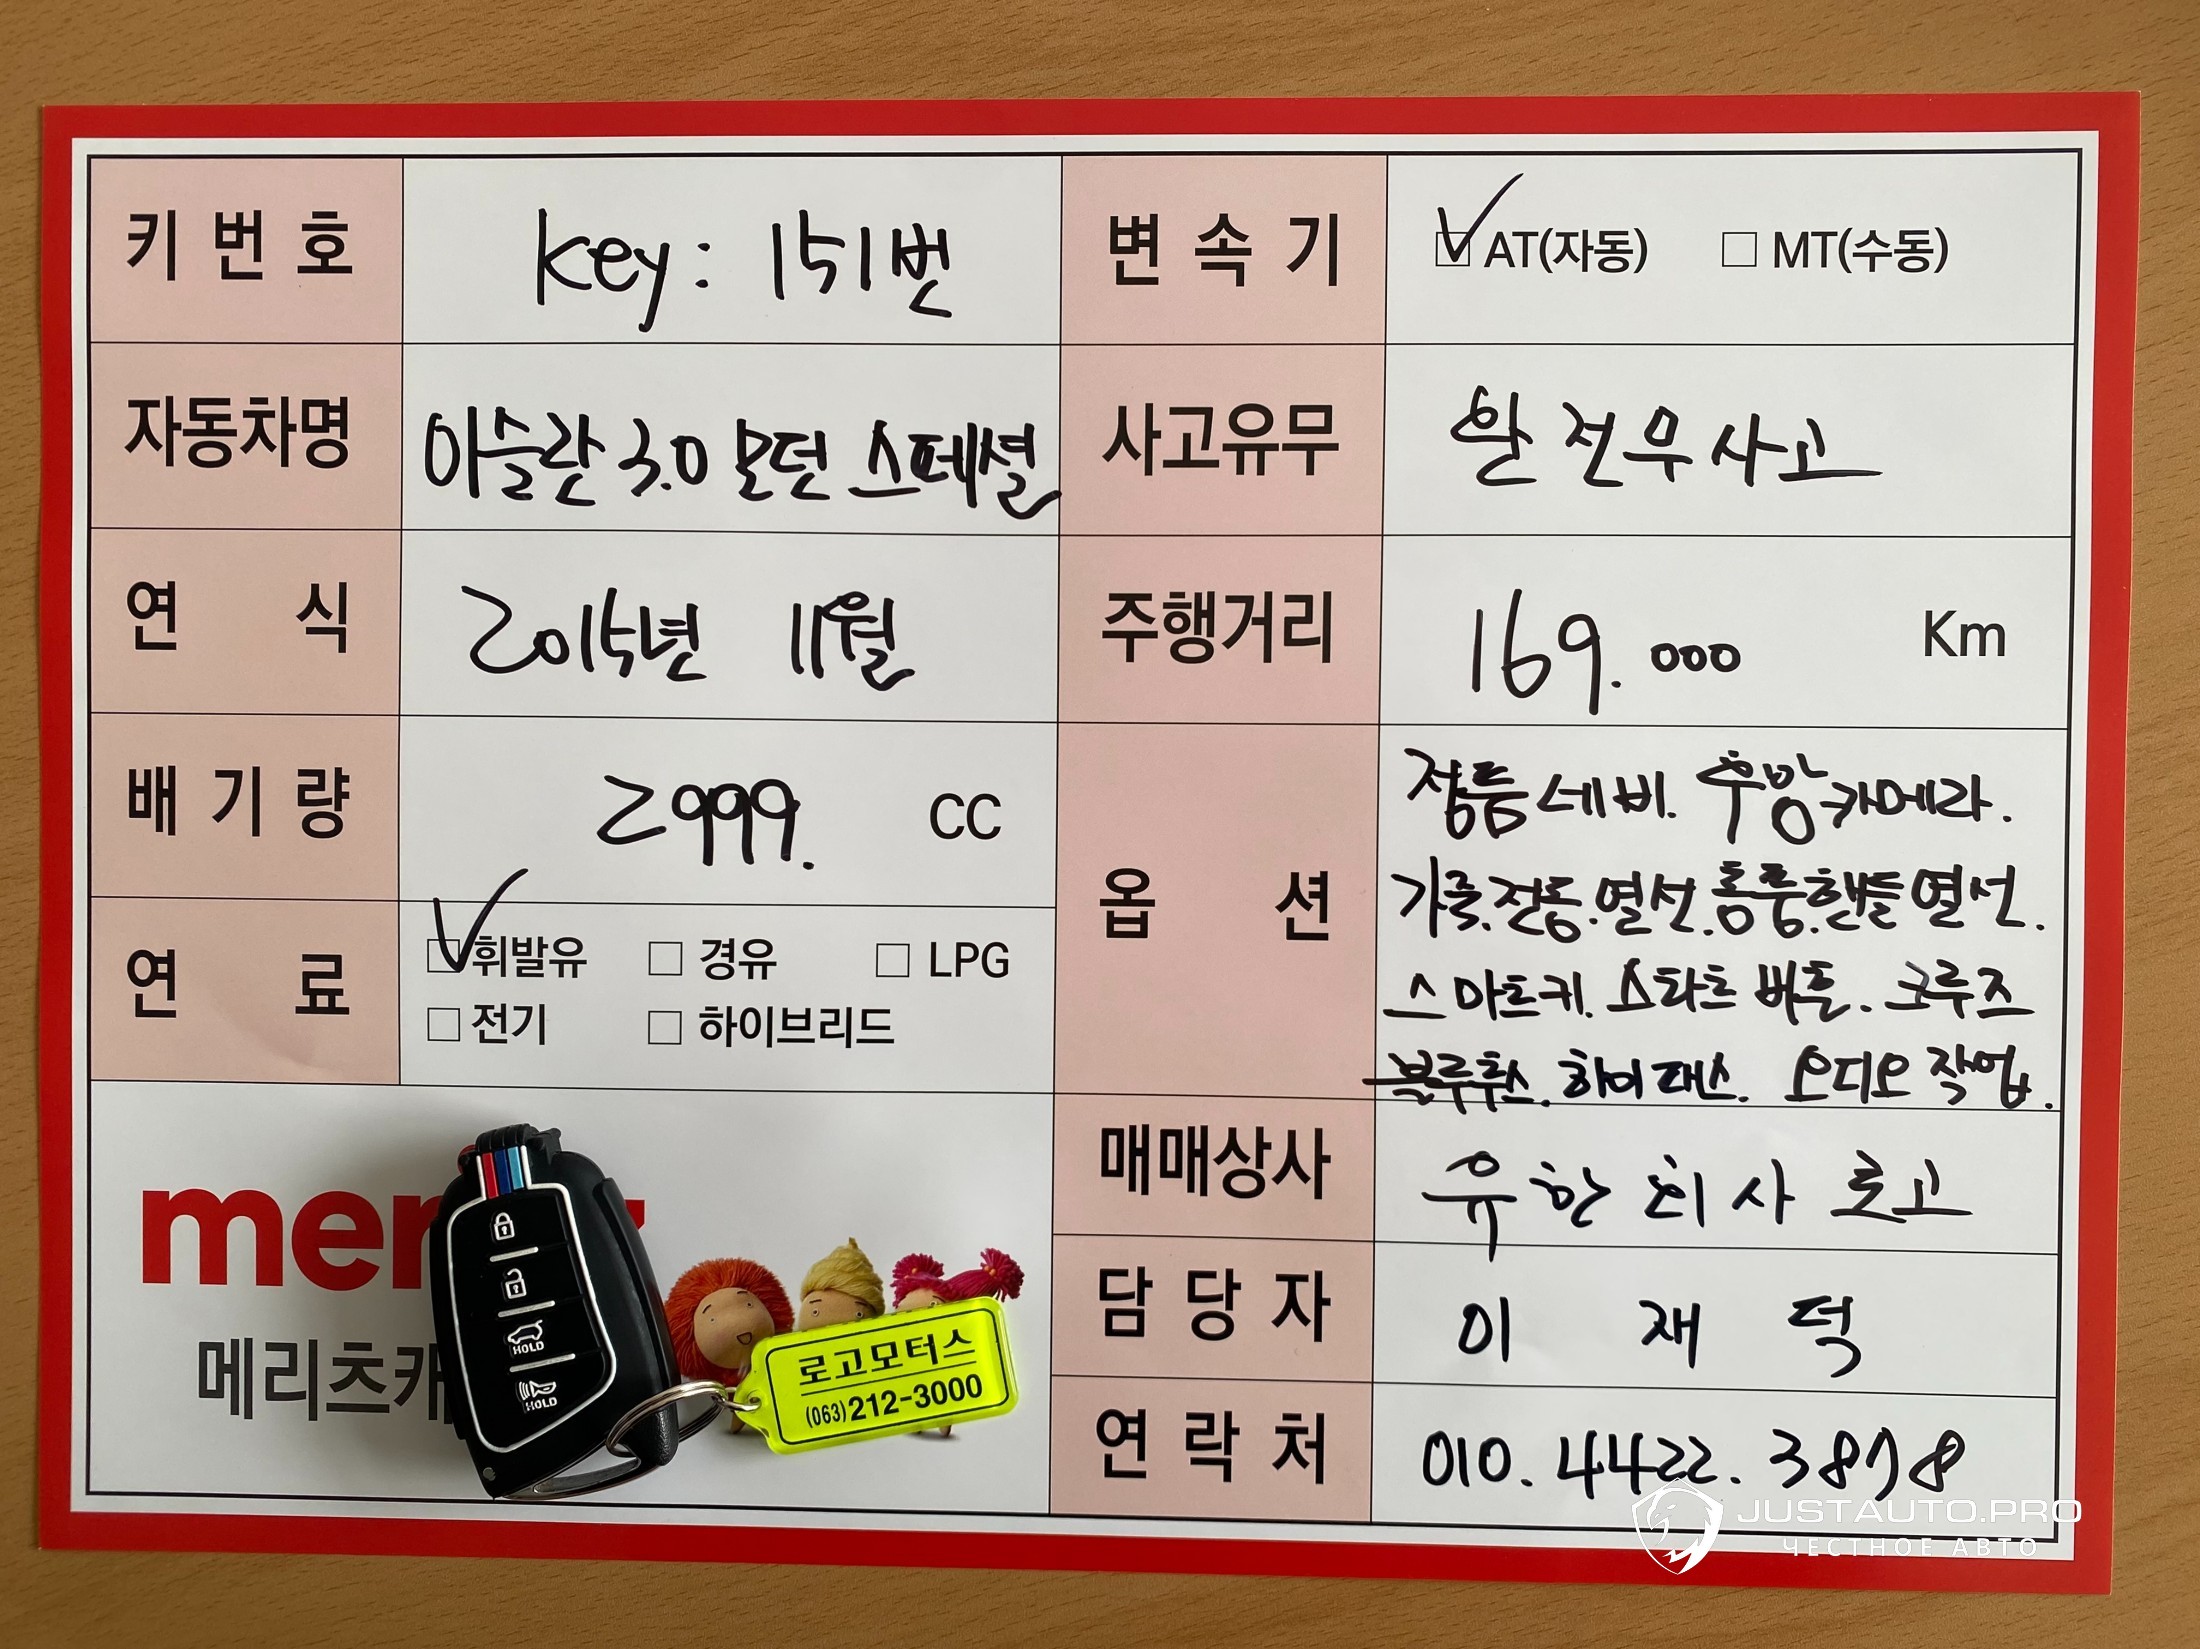 키 번 호
key: 151번
변 속 기
AT(자동) MT(수동)
자동차명
아슬란 3.0 모던 스페셜
사고유무
완전무사고
연 식
2015년 11월
주행거리
169.000 Km
배 기 량
2999. CC
옵 션
정품네비. 후방카메라.
가죽.전동.열선.통풍.핸들열선.
스마트키. 스타트 버튼. 크루즈
블루투스. 하이패스. 오디오 작업.
연 료
휘발유 경유 LPG
전기 하이브리드
매매상사
유한회사 로고
담 당 자
이 재 덕
연 락 처
010. 4422. 3878
mer
메리츠캐
HOLD
HOLD
로고모터스
(063)212-3000
JUSTAUTO.PRO
ЧЕСТНОЕ АВТО